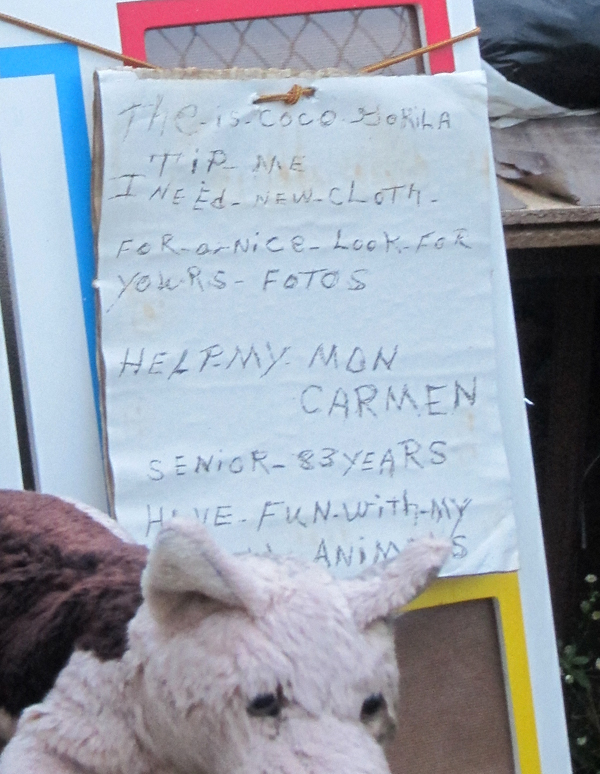 The-is-coco-GoRiLA
TiP-ME
I NEEd-NEW-CLoTh-
FoR-a-NiCe-LooK-FoR
YOURS-FOTOS
HELP-MY-MON
CARMEN
SENioR-83YEARS
HAVE-FUN-With-MY
ANIMALS